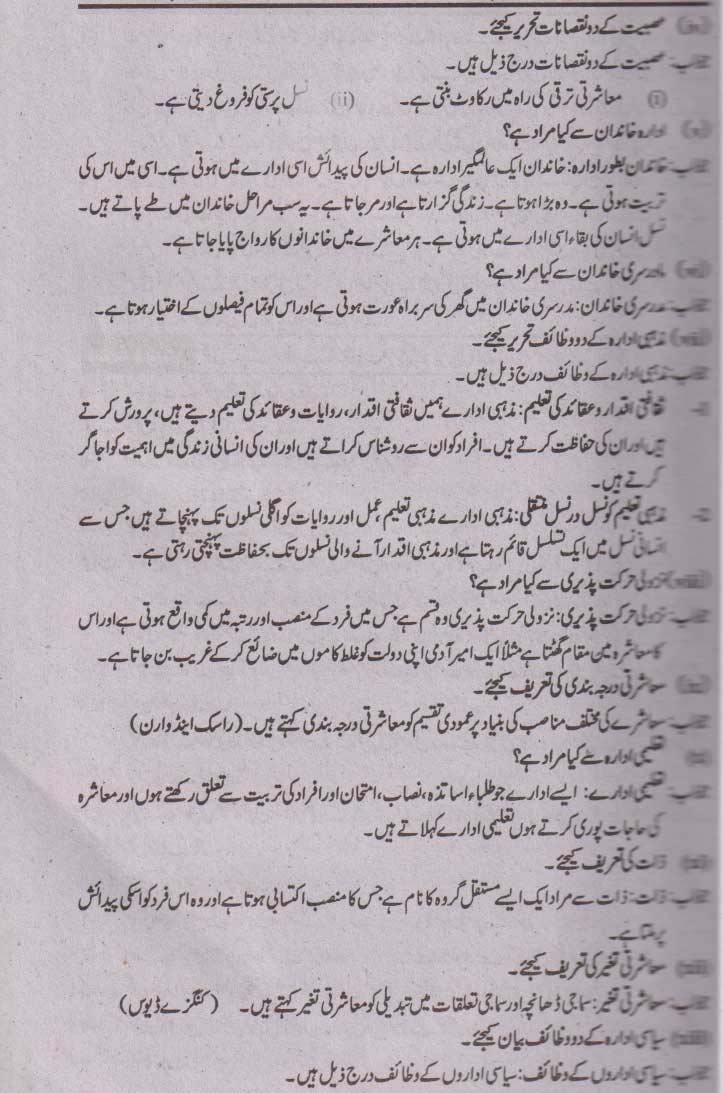 (iv) عصبیت کے دو نقصانات تحریر کیجئے۔
جواب: عصبیت کے دو نقصانات درج ذیل ہیں۔
(i) معاشرتی ترقی کی راہ میں رکاوٹ بنتی ہے۔ (ii) نسل پرستی کو فروغ دیتی ہے۔
(v) ادارہ خاندان سے کیا مراد ہے؟
جواب: خاندان بطور ادارہ: خاندان ایک عالمگیر ادارہ ہے۔ انسان کی پیدائش اسی ادارے میں ہوتی ہے۔ اسی میں اس کی
تربیت ہوتی ہے۔ وہ بڑا ہوتا ہے۔ زندگی گزارتا ہے اور مر جاتا ہے۔ یہ سب مراحل خاندان میں طے پاتے ہیں۔
نسل انسان کی بقاء اسی ادارے میں ہوتی ہے۔ ہر معاشرے میں خاندانوں کا رواج پایا جاتا ہے۔
(vi) مادرسری خاندان سے کیا مراد ہے؟
جواب: مدرسری خاندان: مدرسری خاندان میں گھر کی سربراہ عورت ہوتی ہے اور اس کو تمام فیصلوں کے اختیار ہوتا ہے۔
(vii) مذہبی ادارہ کے دو وظائف تحریر کیجئے۔
جواب: مذہبی ادارہ کے وظائف درج ذیل ہیں۔
1- ثقافتی اقدار و عقائد کی تعلیم: مذہبی ادارے ہمیں ثقافتی اقدار، روایات و عقائد کی تعلیم دیتے ہیں، پرورش کرتے
ہیں اور ان کی حفاظت کرتے ہیں۔ افراد کو ان سے روشناس کراتے ہیں اور ان کی انسانی زندگی میں اہمیت کو اجاگر
کرتے ہیں۔
2- مذہبی تعلیم کو نسل در نسل منتقلی: مذہبی ادارے مذہبی تعلیم، عمل اور روایات کو اگلی نسلوں تک پہنچاتے ہیں جس سے
انسانی نسل میں ایک تسلسل قائم رہتا ہے اور مذہبی اقدار آنے والی نسلوں تک بحفاظت پہنچتی رہتی ہے۔
(viii) نزولی حرکت پذیری سے کیا مراد ہے؟
جواب: نزولی حرکت پذیری: نزولی حرکت پذیری وہ قسم ہے جس میں فرد کے منصب اور رتبہ میں کمی واقع ہوتی ہے اور اس
کا معاشرہ مین مقام گھٹتا ہے مثلاً ایک امیر آدمی اپنی دولت کو غلط کاموں میں ضائع کر کے غریب بن جاتا ہے۔
(ix) معاشرتی درجہ بندی کی تعریف کیجئے۔
جواب: معاشرے کی مختلف مناصب کی بنیاد پر عمودی تقسیم کو معاشرتی درجہ بندی کہتے ہیں۔ (راسک اینڈ وارن)
(x) تعلیمی ادارہ سے کیا مراد ہے؟
جواب: تعلیمی ادارے: ایسے ادارے جو طلباء اساتذہ، نصاب، امتحان اور افراد کی تربیت سے تعلق رکھتے ہوں اور معاشرہ
کی حاجات پوری کرتے ہوں تعلیمی ادارے کہلاتے ہیں۔
(xi) ذات کی تعریف کیجئے۔
جواب: ذات: ذات سے مراد ایک ایسے مستقل گروہ کا نام ہے جس کا منصب اکتسابی ہوتا ہے اور وہ اس فرد کو اسکی پیدائش
پر ملتا ہے۔
(xii) معاشرتی تغیر کی تعریف کیجئے۔
جواب: معاشرتی تغیر: سماجی ڈھانچہ اور سماجی تعلقات میں تبدیلی کو معاشرتی تغیر کہتے ہیں۔ (کنگزے ڈیوس)
(xiii) سیاسی ادارہ کے دو وظائف بیان کیجئے۔
جواب: سیاسی اداروں کے وظائف: سیاسی اداروں کے وظائف درج ذیل ہیں۔